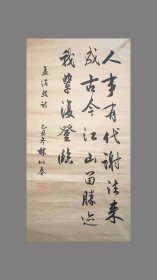 人事有代谢往来
成古今江山留胜迹
我辈复登临
孟浩然诗
乙亥冬林仙春